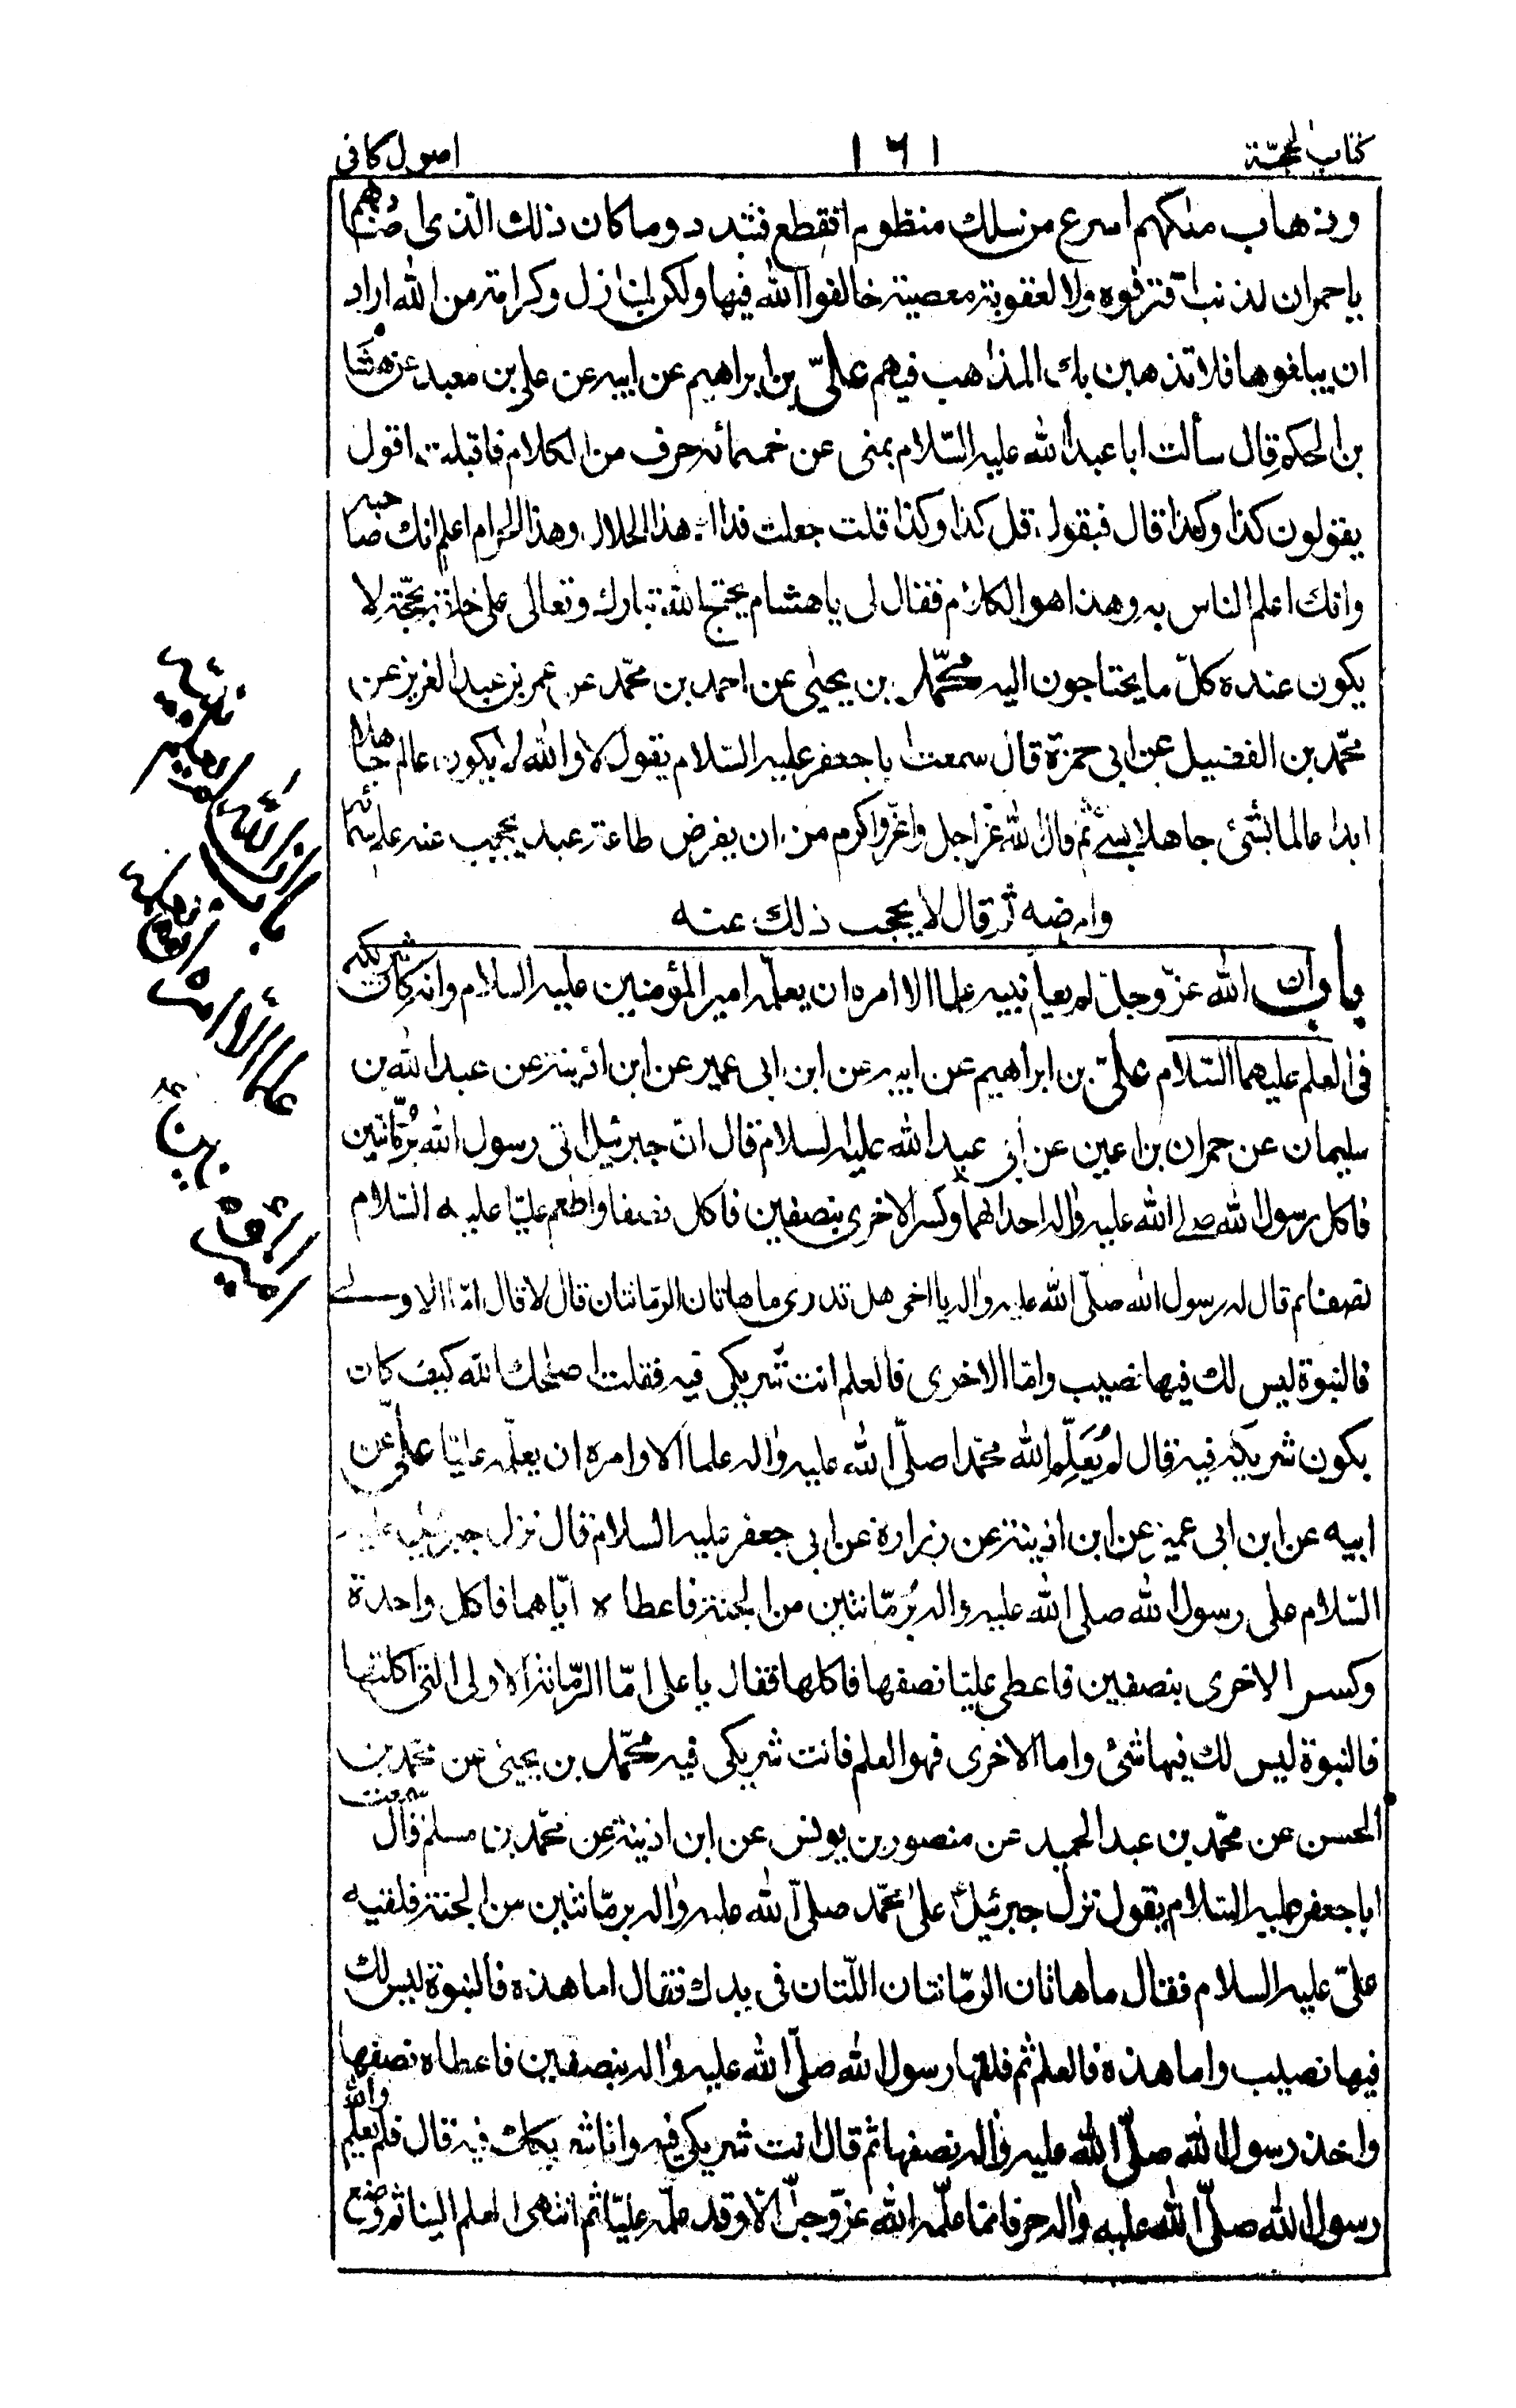 كتاب الحجّة
١٦١
اصول كافى
وذهاب ملكهم اسرع من سلك منظوم انقطع فتبدد وما كان ذلك الّذى اصابهم
يا حمران لذنب اقترفوه ولا لعقوبة معصية خالفوا الله فيها ولكن لمنازل وكرامة من الله اراد
ان يبلغوها فلا تذهبن بك المذاهب فيهم علىّ بن ابراهيم عن ابيه عن على بن معبد عن هشام
بن الحكم قال سألت ابا عبد الله عليه السّلام بمنى عن خمسمائة حرف من الكلام فاقبلت اقول
يقولون كذا وكذا قال فيقول قل كذا وكذا قلت جعلت فداك هذا الحلال وهذا الحرام اعلم انك صاحبه
وانك اعلم الناس به وهذا هو الكلام فقال لى يا هشام يحتج الله تبارك وتعالى على خلقه بحجّة لا
يكون عنده كلّ ما يحتاجون اليه محمّد بن يحيى عن احمد بن محمّد عن عمر بن عبد العزيز عن
محمّد بن الفضيل عن ابى حمزة قال سمعت ابا جعفر عليه السّلام يقول لا والله لا يكون عالم جاهلا
ابدا عالما بشئ جاهلا بشئ ثم قال الله عز اجل واعزّ واكرم من ان يفرض طاعة عبد يحجب عنه علم سمائه
وارضه ثم قال لا يحجب ذلك عنه
باب ان الله عزّ وجلّ لم يعلم نبيه علما الا امره ان يعلّمه امير المؤمنين عليه السلام وانه كان شريكه
فى العلم عليهما السّلام علىّ بن ابراهيم عن ابيه عن ابن ابى عمير عن ابن اذينة عن عبد الله بن
سليمان عن حمران بن اعين عن أبى عبد الله عليه السلام قال انّ جبرئيل اتى رسول الله برُمّانتين
فاكل رسول الله صلى الله عليه واله احدٰاهما وكسر الاخرى بنصفين فاكل نصفا واطعم عليّا عليه السّلام
نصفا ثم قال له رسول الله صلّى الله عليه واله يا اخى هل تدرى ما هاتان الرمّانتان قال لا قال امّا الاولى
فالنبوة ليس لك فيها نصيب وامّا الاخرى فالعلم انت شريكى فيه فقلت اصلحك الله كيف كان
يكون شريكه فيه قال لم يُعَلِّم الله محمّدا صلّى الله عليه واله علما الا وامره ان يعلّمه عليّا علىّ عن
ابيه عن ابن ابى عمير عن ابن اذينة عن زرارة عن ابى جعفر عليه السلام قال نزل جبرئيل عليه
السّلام على رسول الله صلى الله عليه واله برُمّانتين من الجنة فاعطاه ايّاهما فاكل واحدة
وكسر الاخرى بنصفين فاعطى عليّا نصفها فاكلها فقال يا على امّا الرّمّانة الاولى التى اكلتها
فالنبوة ليس لك فيها شئ واما الاخرى فهو العلم فانت شريكى فيه محمّد بن يحيى عن محمّد بن
الحسن عن محمّد بن عبد الحميد عن منصور بن يونس عن ابن اذينة عن محمّد بن مسلم قال سمعت
ابا جعفر عليه السّلام يقول نزل جبرئيل على محمّد صلّى الله عليه واله برمّانتين من الجنة فلقيه
علىّ عليه السلام فقال ما هاتان الرّمّانتان اللّتان فى يدك فقال اما هذه فالنبوة ليس لك
فيها نصيب واما هذه فالعلم ثم فلقها رسول الله صلّى الله عليه واله بنصفين فاعطاه نصفها
واخذ رسول الله صلّى الله عليه واله نصفها ثم قال انت شريكى فيه وانا شريكك فيه قال فلم يعلم والله
رسول الله صلّى الله عليه واله حرفا ممّا علّمه الله عزّ وجلّ الّا وقد علّمه عليّا ثم انتهى العلم الينا ثم وضع
باب ان الله
علما الا امره
ان
امير